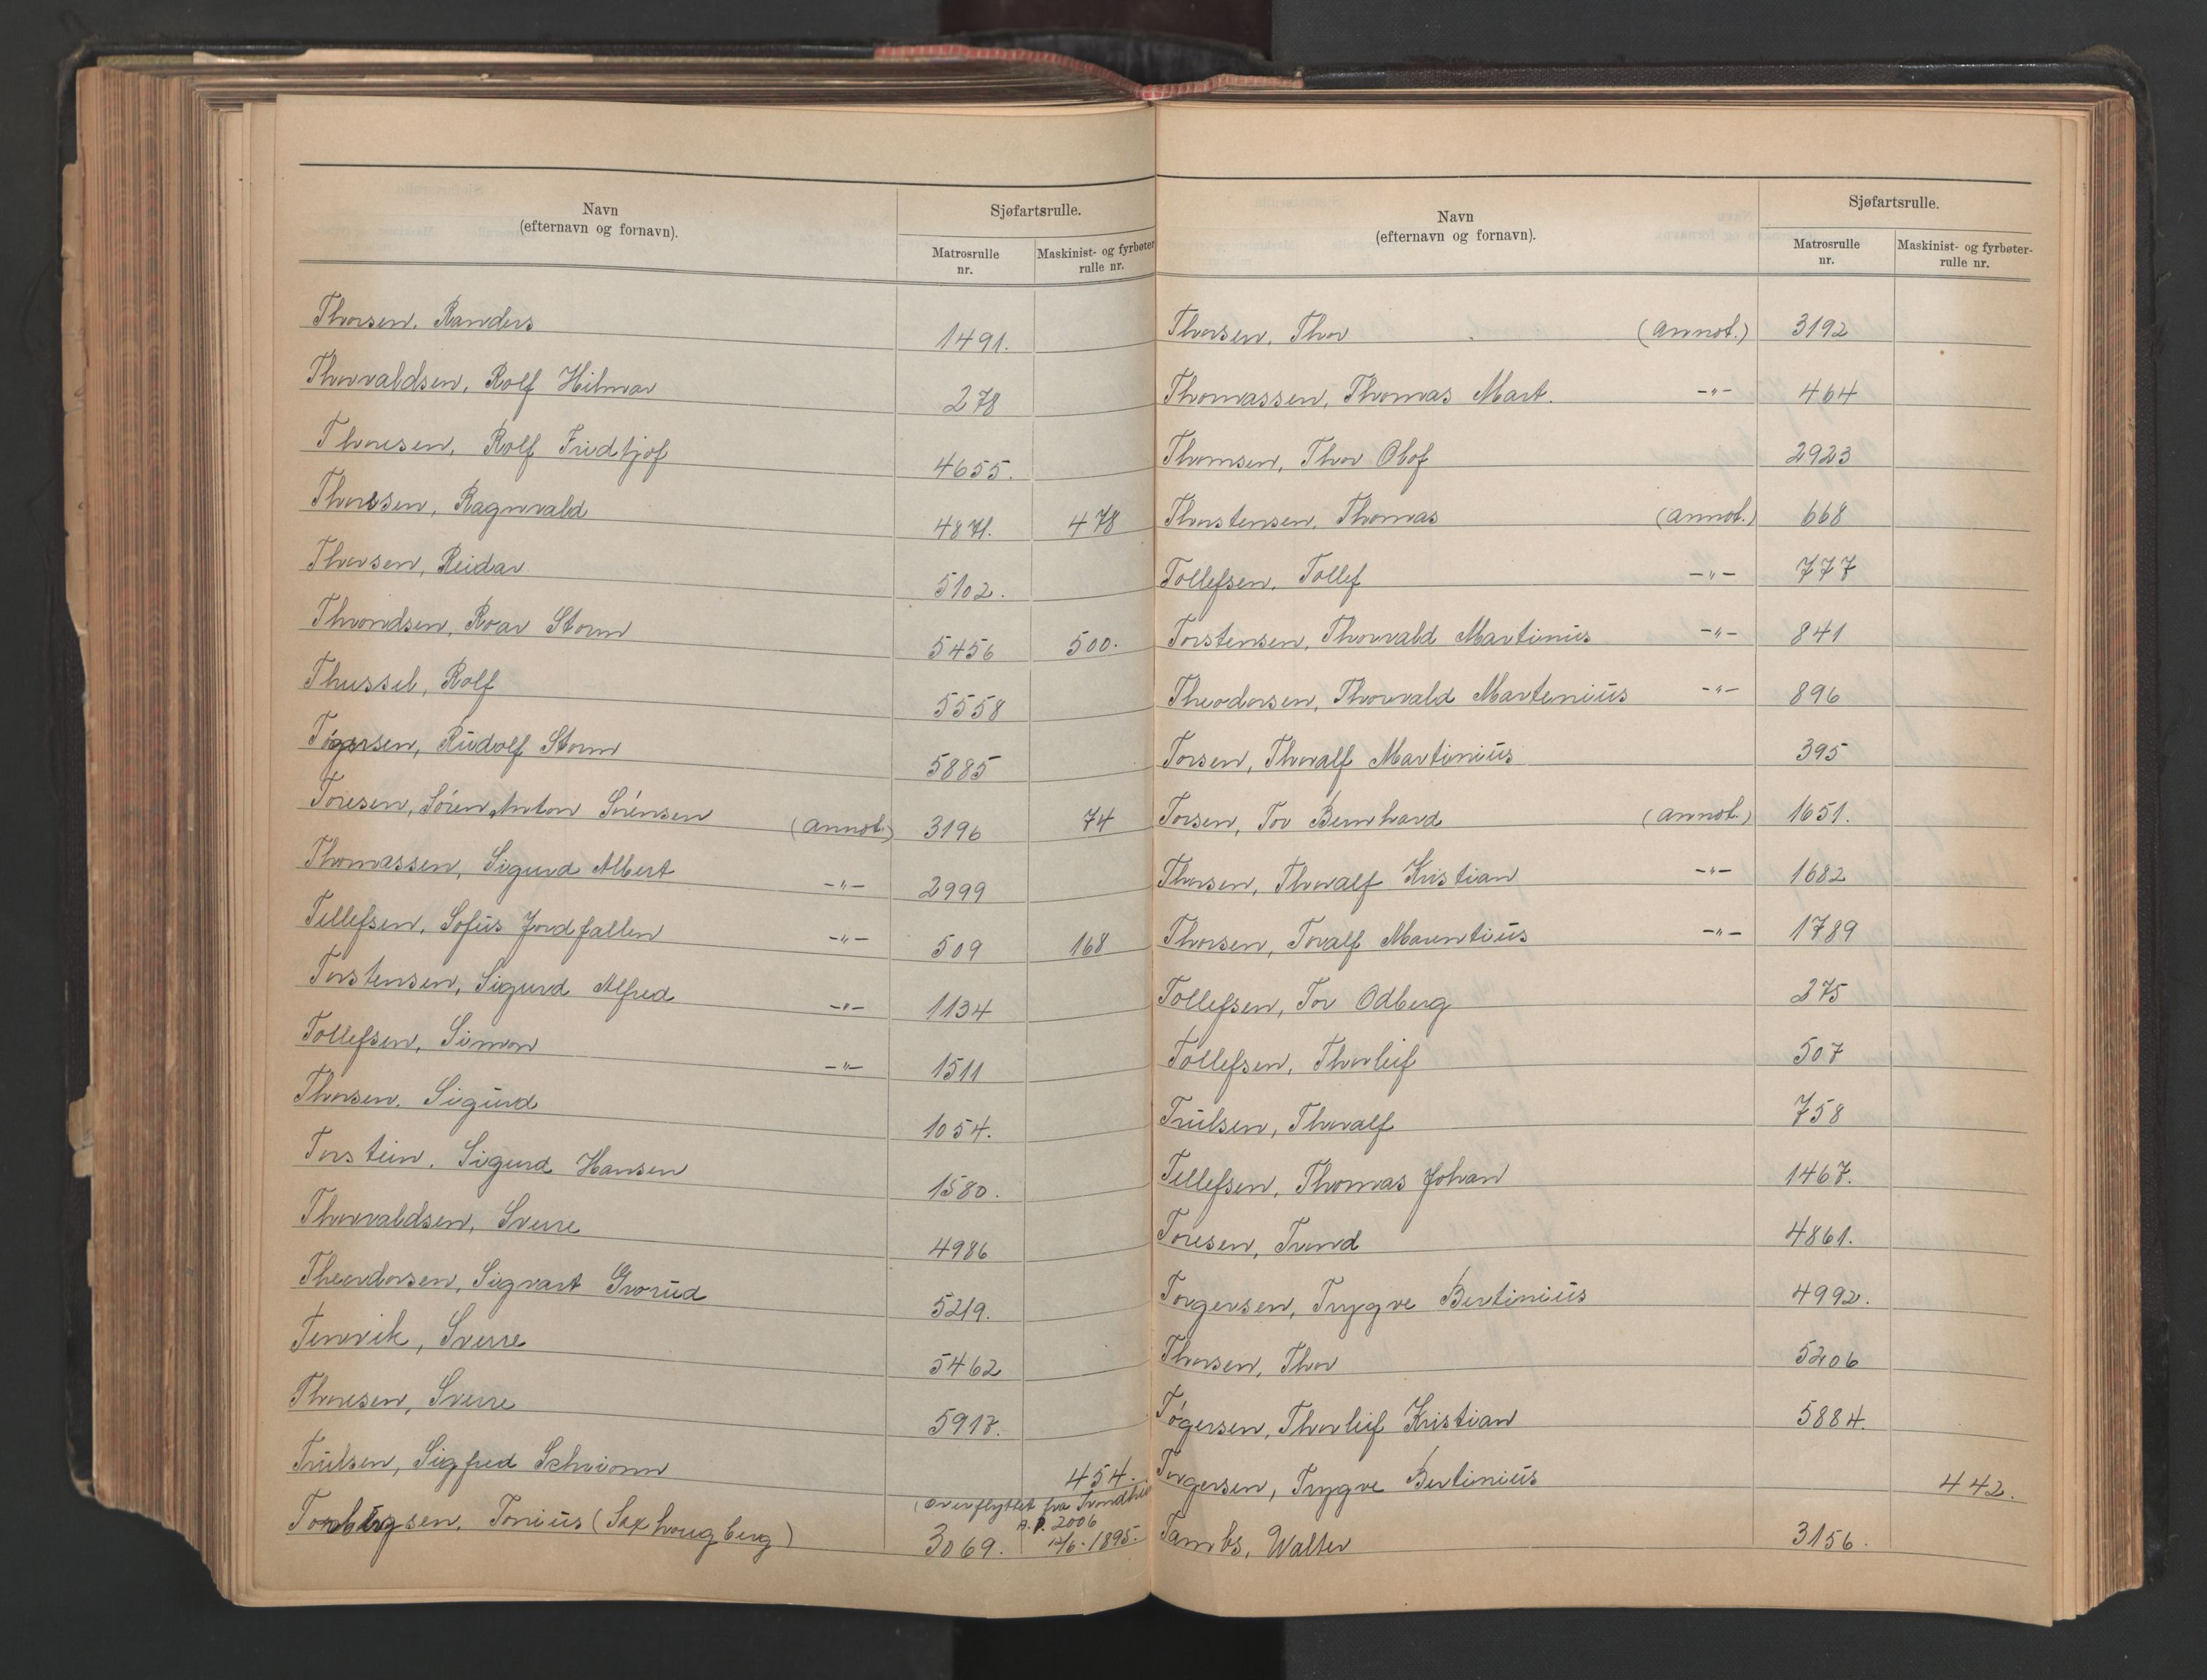 Navn
(efternavn og fornavn).
Sjøfartsrulle.
Matrosrulle
nr.
Maskinist- og fyrbøter
rulle nr.
Thorsen, Randers 1491.
Thorvaldsen, Rolf Hilmar 278
Thoresen, Rolf Fridtjof 4655.
Thoresen, Ragnvald 4871. 478
Thorsen, Reidar 5102.
Throndsen, Roar Storm 5456 500.
Thussel, Rolf 5558
Tøgersen, Rudolf Storm 5885
Toresen, Søren Anton Sørensen (annot.) 3196 74
Thomassen, Sigurd Albert -"- 2999
Tellefsen, Sofus Jordfallen -"- 509 168
Torstensen, Sigurd Alfred -"- 1134
Tollefsen, Simon -"- 1511
Thorsen, Sigurd 1054.
Torstein, Sigurd Hansen 1580.
Thorvaldsen, Sverre 4986
Theodorsen, Sigvart Grorud 5219.
Tenvik, Sverre 5462
Thoresen, Sverre 5917.
Trulsen, Sigfred 454.
(overflyttet fra Trondhj
A. P. 2006
12/6-1895.
Torbergsen, Tonius (Saxhaugberg) 3069.
Navn
(efternavn og fornavn).
Sjøfartsrulle.
Matrosrulle
nr.
Maskinist- og fyrbøter-
rulle nr.
Thorsen, Thor (annot.) 3192
Thomassen, Thomas Mart. -"- 464
Thomsen, Thor Olof 2923
Thorstensen, Thomas (annot.) 668
Tollefsen, Tollef -"- 777
Torstensen, Thorvald Martinius -"- 841
Theodorsen, Thorvald Martenius -"- 896
Torsen, Thoralf Martinius 395
Torsen, Tor Bernhard (annot.) 1651.
Thorsen, Thoralf Kristian -"- 1682
Thorsen, Toralf Marentius -"- 1789
Tollefsen, Tor Odberg 275
Tollefsen, Thorleif 507
Trulsen, Thoralf 758
Tellefsen, Thomas Johan 1467.
Toresen, Trond 4861.
Torgersen, Trygve Bertinius 4992.
Thorsen, Thor 5206
Tøgersen, Thorleif Kristian 5884.
Torgersen, Trygve Bertinius 442.
Tambs, Walter 3156.